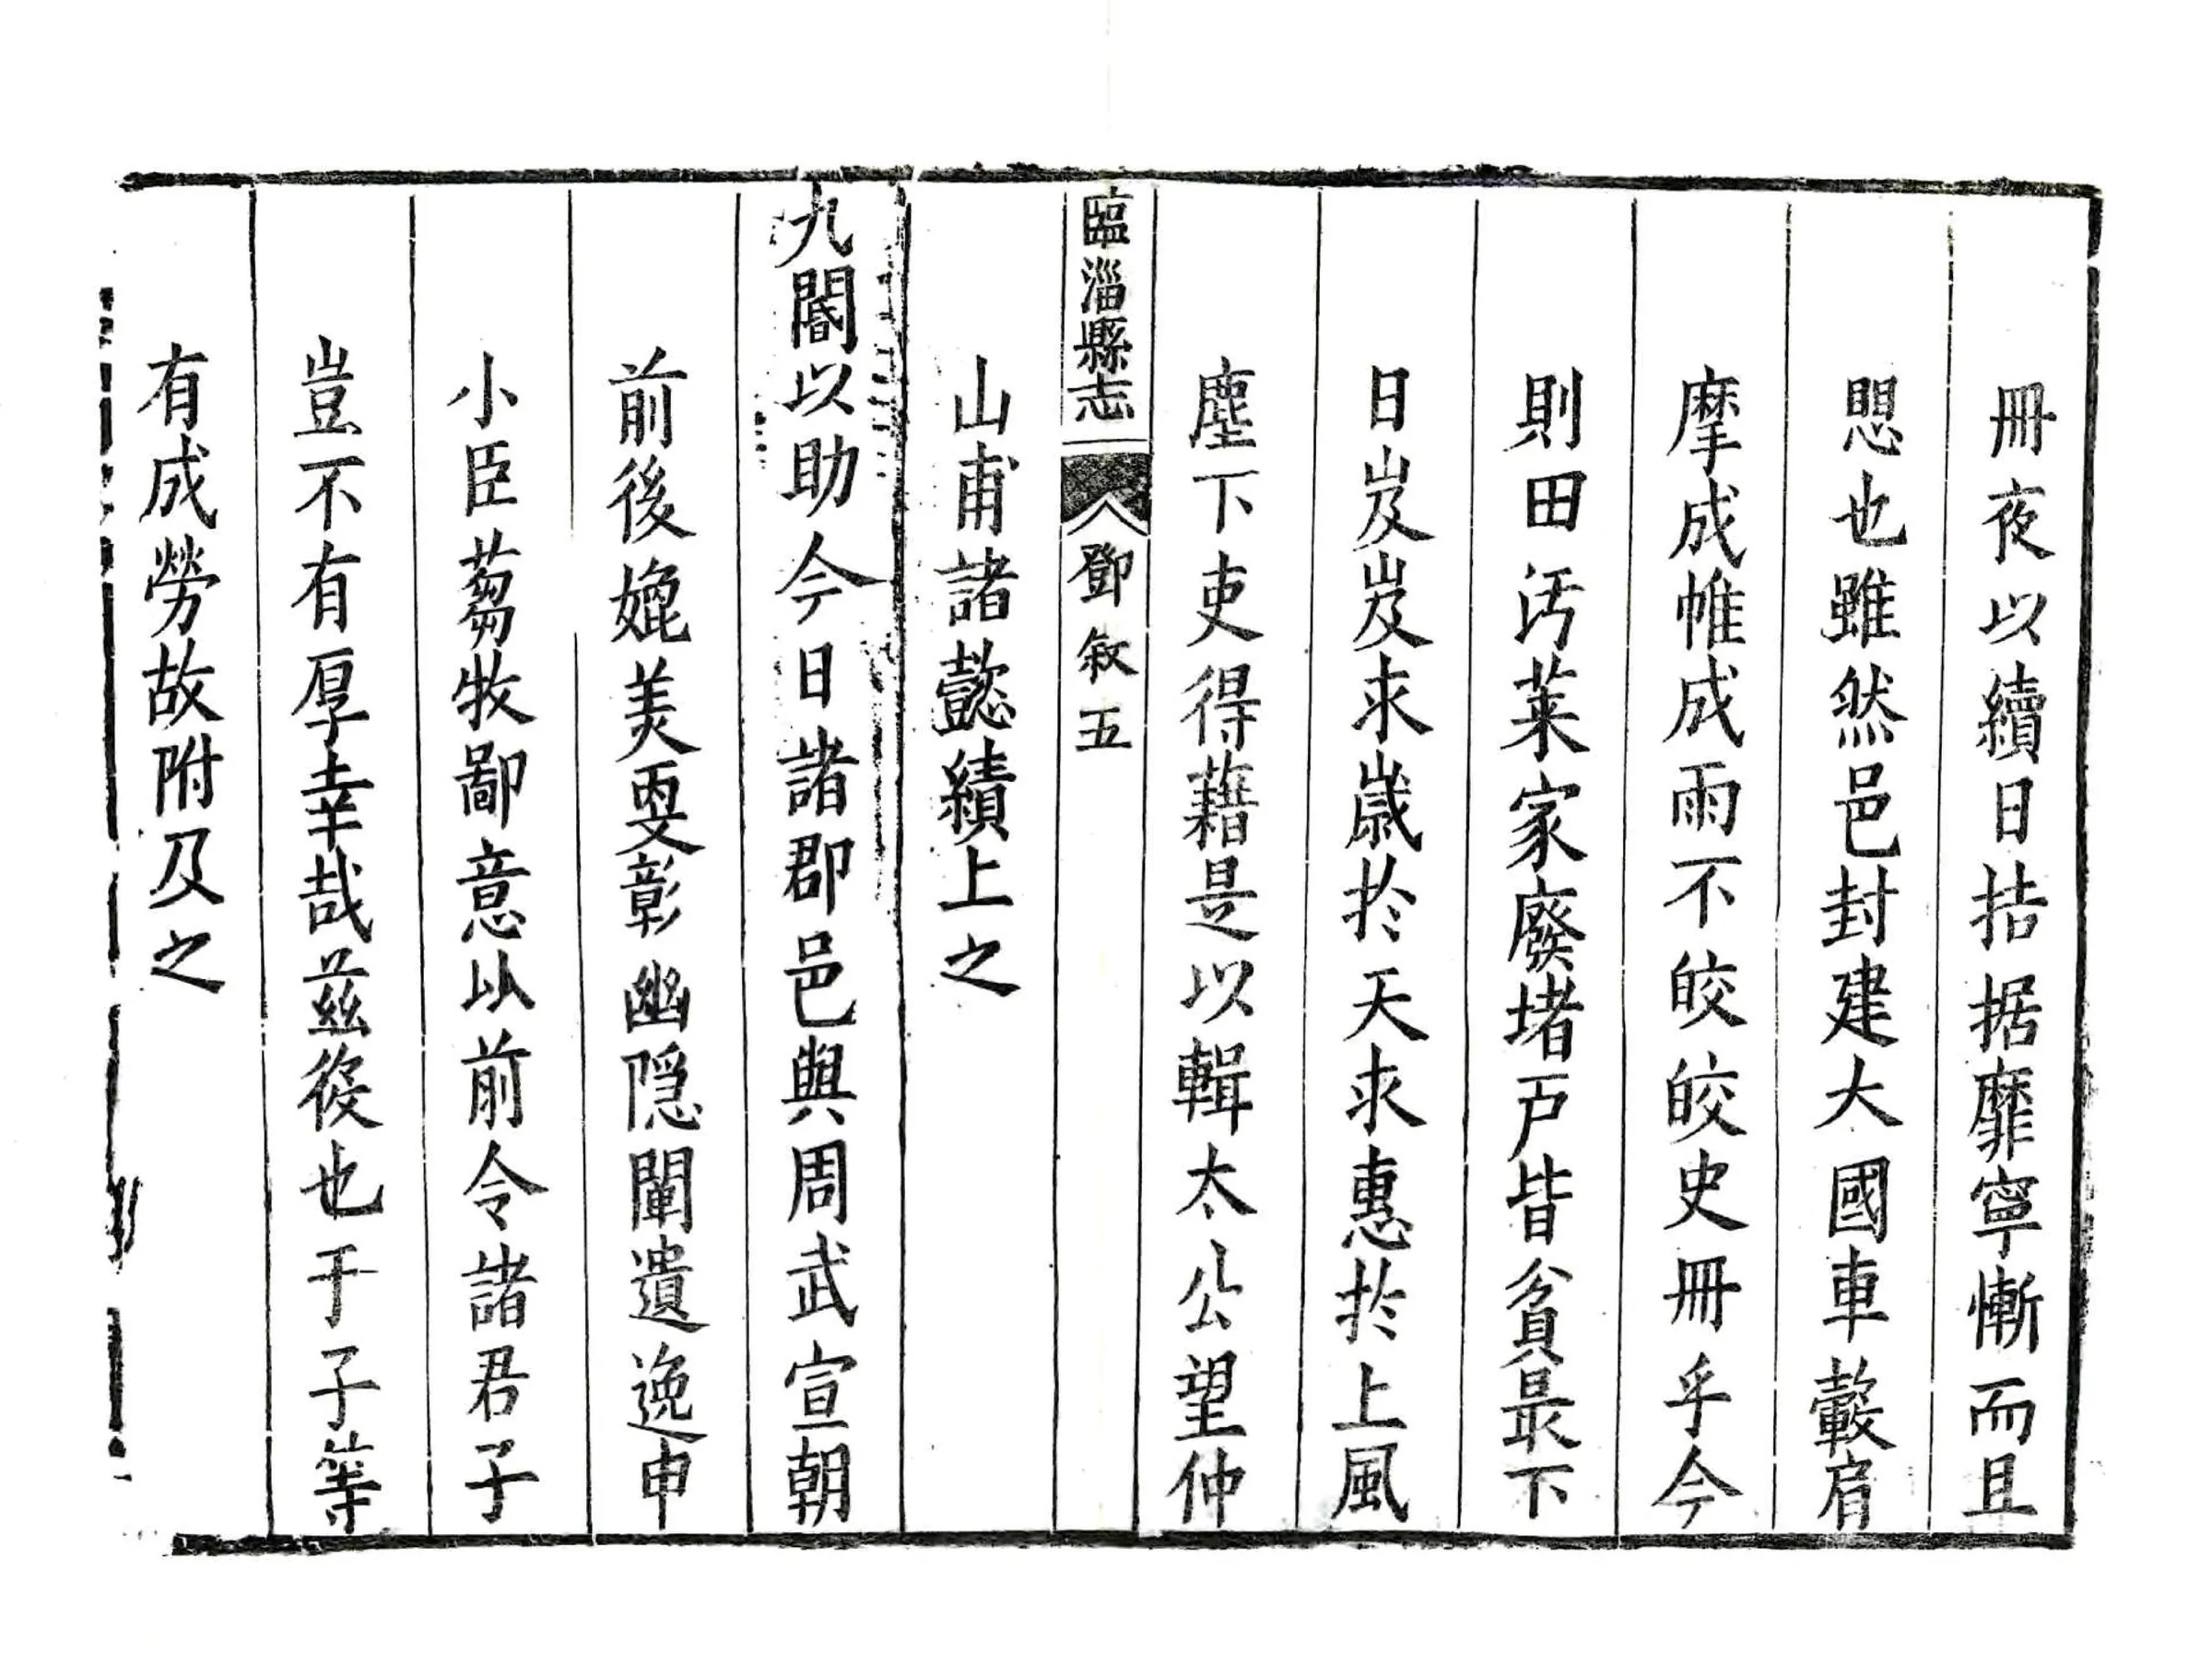 冊夜以續日拮据靡寧慚而且
愳也雖然邑封建大國車轂肩
摩成帷成雨不皎皎史冊乎今
則田汚萊家廢堵戸皆貧最下
日岌岌求歲於天求惠於上風
塵下吏得藉是以輯太公望仲
臨淄縣志 鄧敘 五
山甫諸懿績上之
九閽以助今日諸郡邑與周武宣朝
前後媲美更彰幽隱闡遺逸申
小臣蒭牧鄙意以前令諸君子
豈不有厚幸哉茲役也于子等
有成勞故附及之